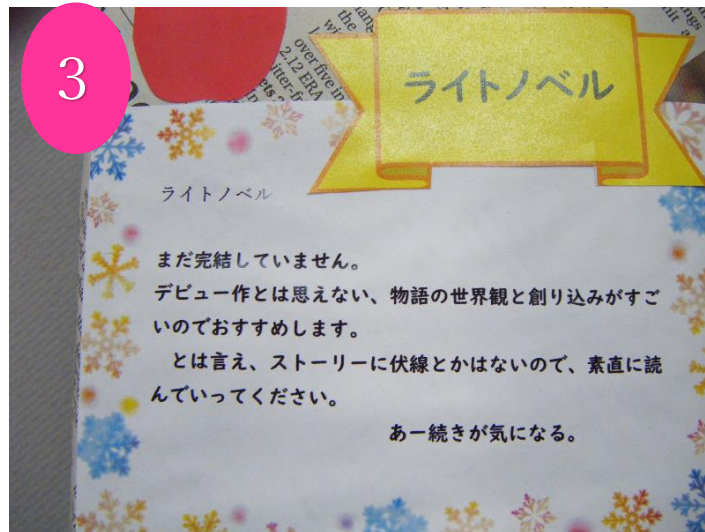 3
ライトノベル
ライトノベル
まだ完結していません。
デビュー作とは思えない、物語の世界観と創り込みがすご
いのでおすすめします。
とは言え、ストーリーに伏線とかはないので、素直に読
んでいってください。
あー続きが気になる。
over five in
2.12 ERA